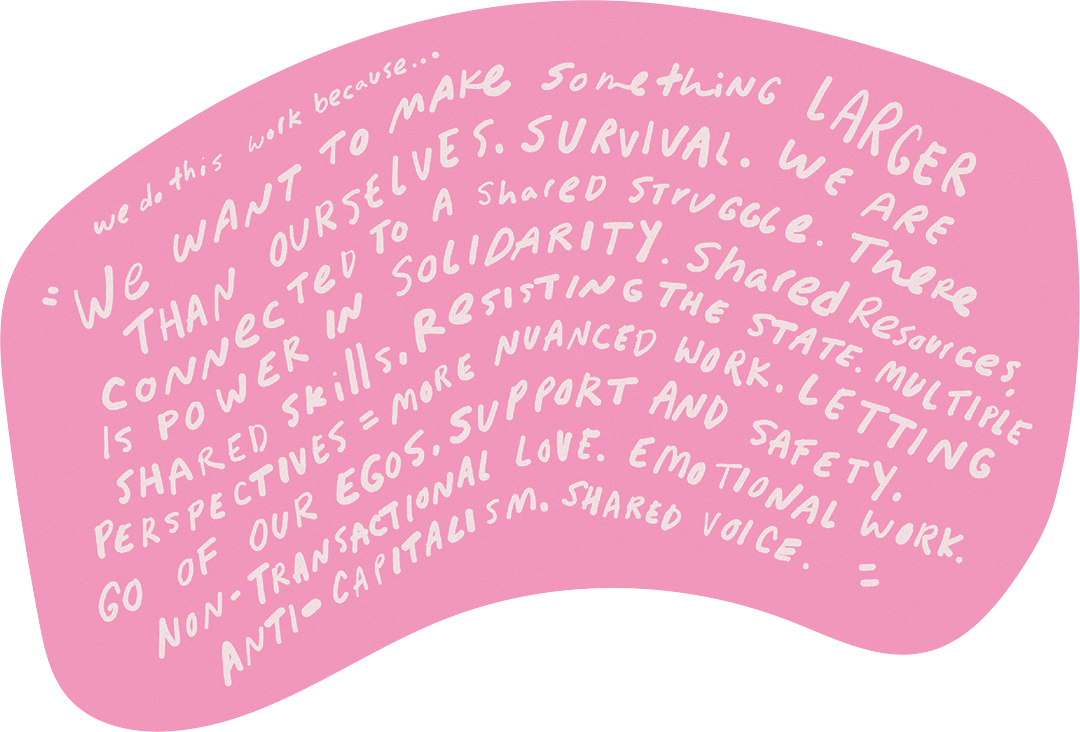 we do this work because...
"We WANT TO MAKe SomethiNG LARGER
THAN OURSELVES. SURVIVAL. WE ARE
CONNecTeD TO A ShareD STRUGGLe. THeRe
IS POWER IN SOLIDARITY. SharedResources,
SHARED Skills. ResiSTING THE STATE. MULTIPLE
PERSPECTIVES = MORE NUANCED WORK. LETTING
GO OF OUR EGOS. SUPPORT AND SAFETY.
NON-TRANSACTIONAL LOVE. EMOTIONAL WORK.
ANTI-CAPITALISM. SHARED VOICE. "